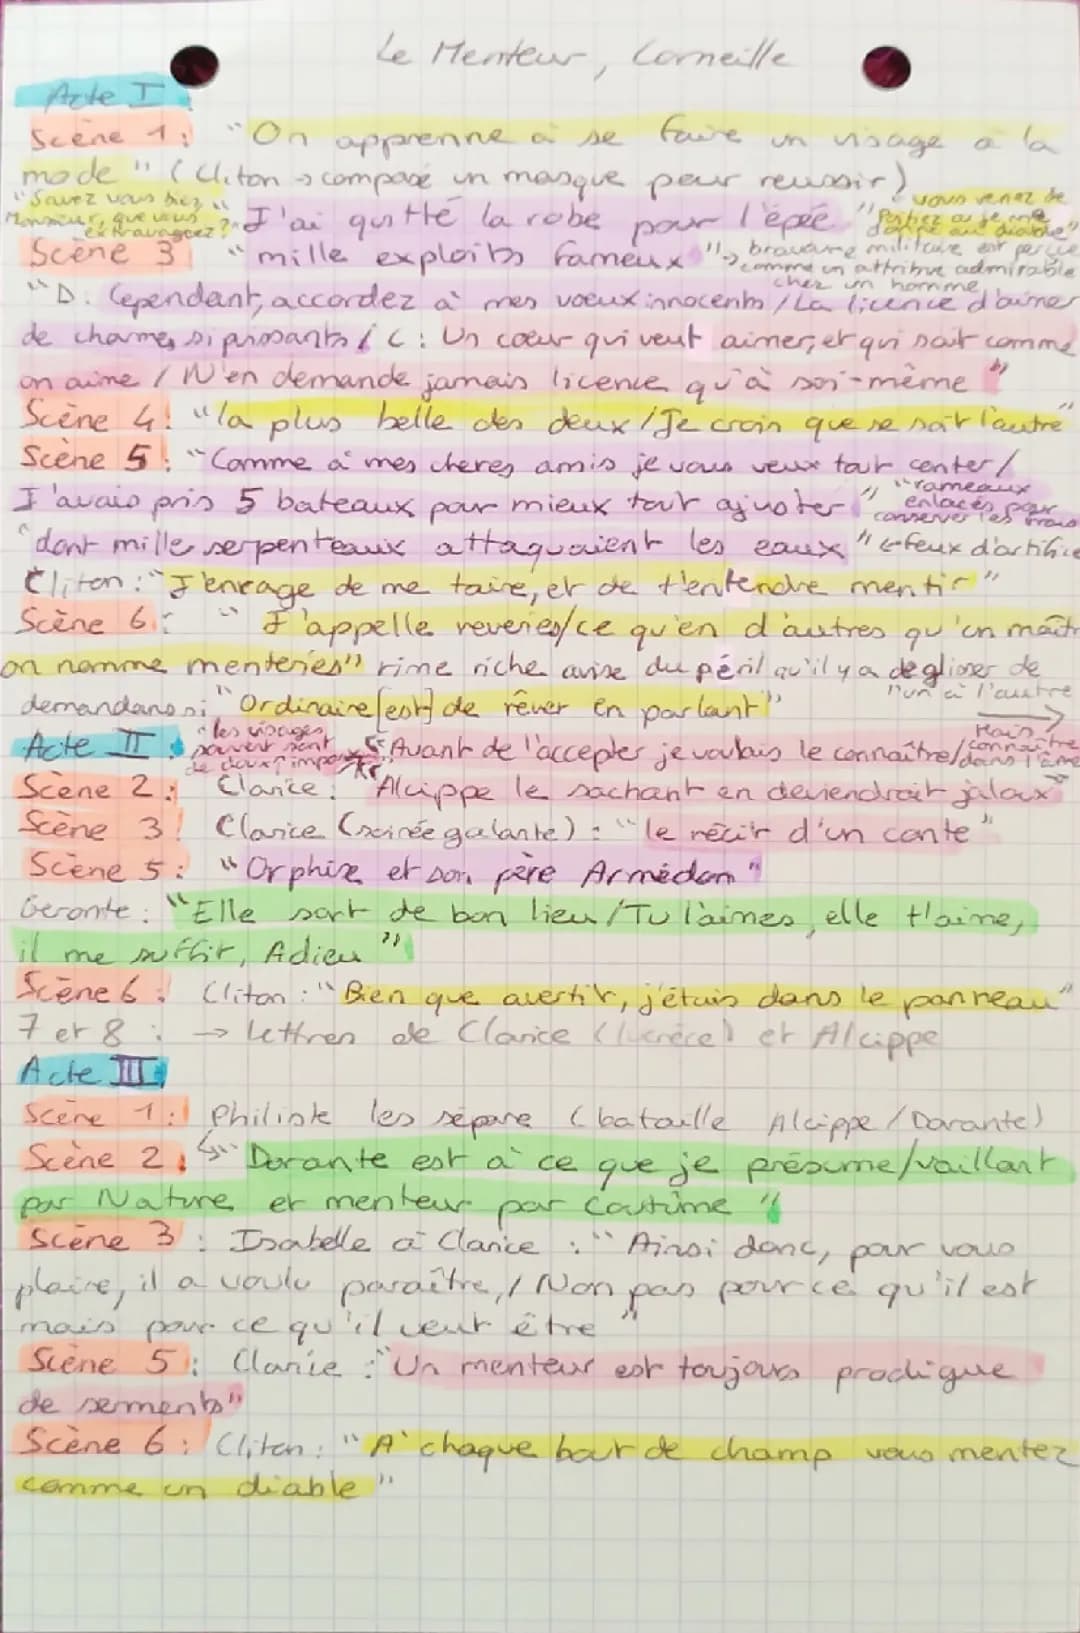 Le Menteur, Corneille
Acte I
Scène 1 : "On apprenne à se faire un visage à la
mode" (Cliton → composé un masque pour reussir)
"Savez vous bien
Monsieur, que vous
extravaguez ?"
"J'ai quitté la robe pour l'épée"
"vous venez de
Poitiez ou je me
donne au diable"
Scène 3 "mille exploits fameux" → bravoure militaire est perçue
comme un attribue admirable
chez un homme
"D : Cependant, accordez à mes voeux innocents / La licence d'aimer
de charmes si puissants / C : Un coeur qui veut aimer, et qui sait comme
on aime / N'en demande jamais licence qu'à soi-même"
Scène 4 : "la plus belle des deux / Je crois que se soit l'autre"
Scène 5 : "Comme à mes cheres amis je vous veux tout conter /
J'avais pris 5 bateaux pour mieux tout ajuster"
"rameaux
enlacés pour
conserver les frais
"dont mille serpenteaux attaquaient les eaux" ← feux d'artifice
Cliton : "J'enrage de me taire, et de t'entendre mentir"
Scène 6 : "J'appelle reveries / ce qu'en d'autres qu'un maître
on nomme menteries" rime riche avise du péril qu'il y a de glisser de
l'un à l'autre
demandans si "Ordinaire [est] de rêver en parlant"
Acte II
"les visages
souvent sont
de doux impos
"Avant de l'accepter je voulais le connaître /
Mais connaître
dans l'âme
Scène 2 : Clarice : "Alcippe le sachant en deviendroit jaloux"
Scène 3 : Clarice (soirée galante) : "le récit d'un conte"
Scène 5 : "Orphise et son père Armédon"
Geronte : "Elle sort de bon lieu / Tu l'aimes, elle t'aime,
il me suffit, Adieu"
Scène 6 : Cliton : "Bien que avertir, j'étais dans le panneau"
7 et 8 : → Lettres de Clarice (lucrèce) et Alcippe
Acte III
Scène 1 : Philiste les sépare (bataille Alcippe / Dorante)
Scène 2 : "Dorante est à ce que je présume / vaillant
par Nature et menteur par Coutûme"
Scène 3 : Isabelle à Clarice : "Ainsi donc, pour vous
plaire, il a voulu paraître, / Non pas pour ce qu'il est
mais pour ce qu'il veut être"
Scène 5 : Clarice : "Un menteur est toujours prodigue
de serments"
Scène 6 : Cliton : "A chaque bout de champ vous mentez
comme un diable"